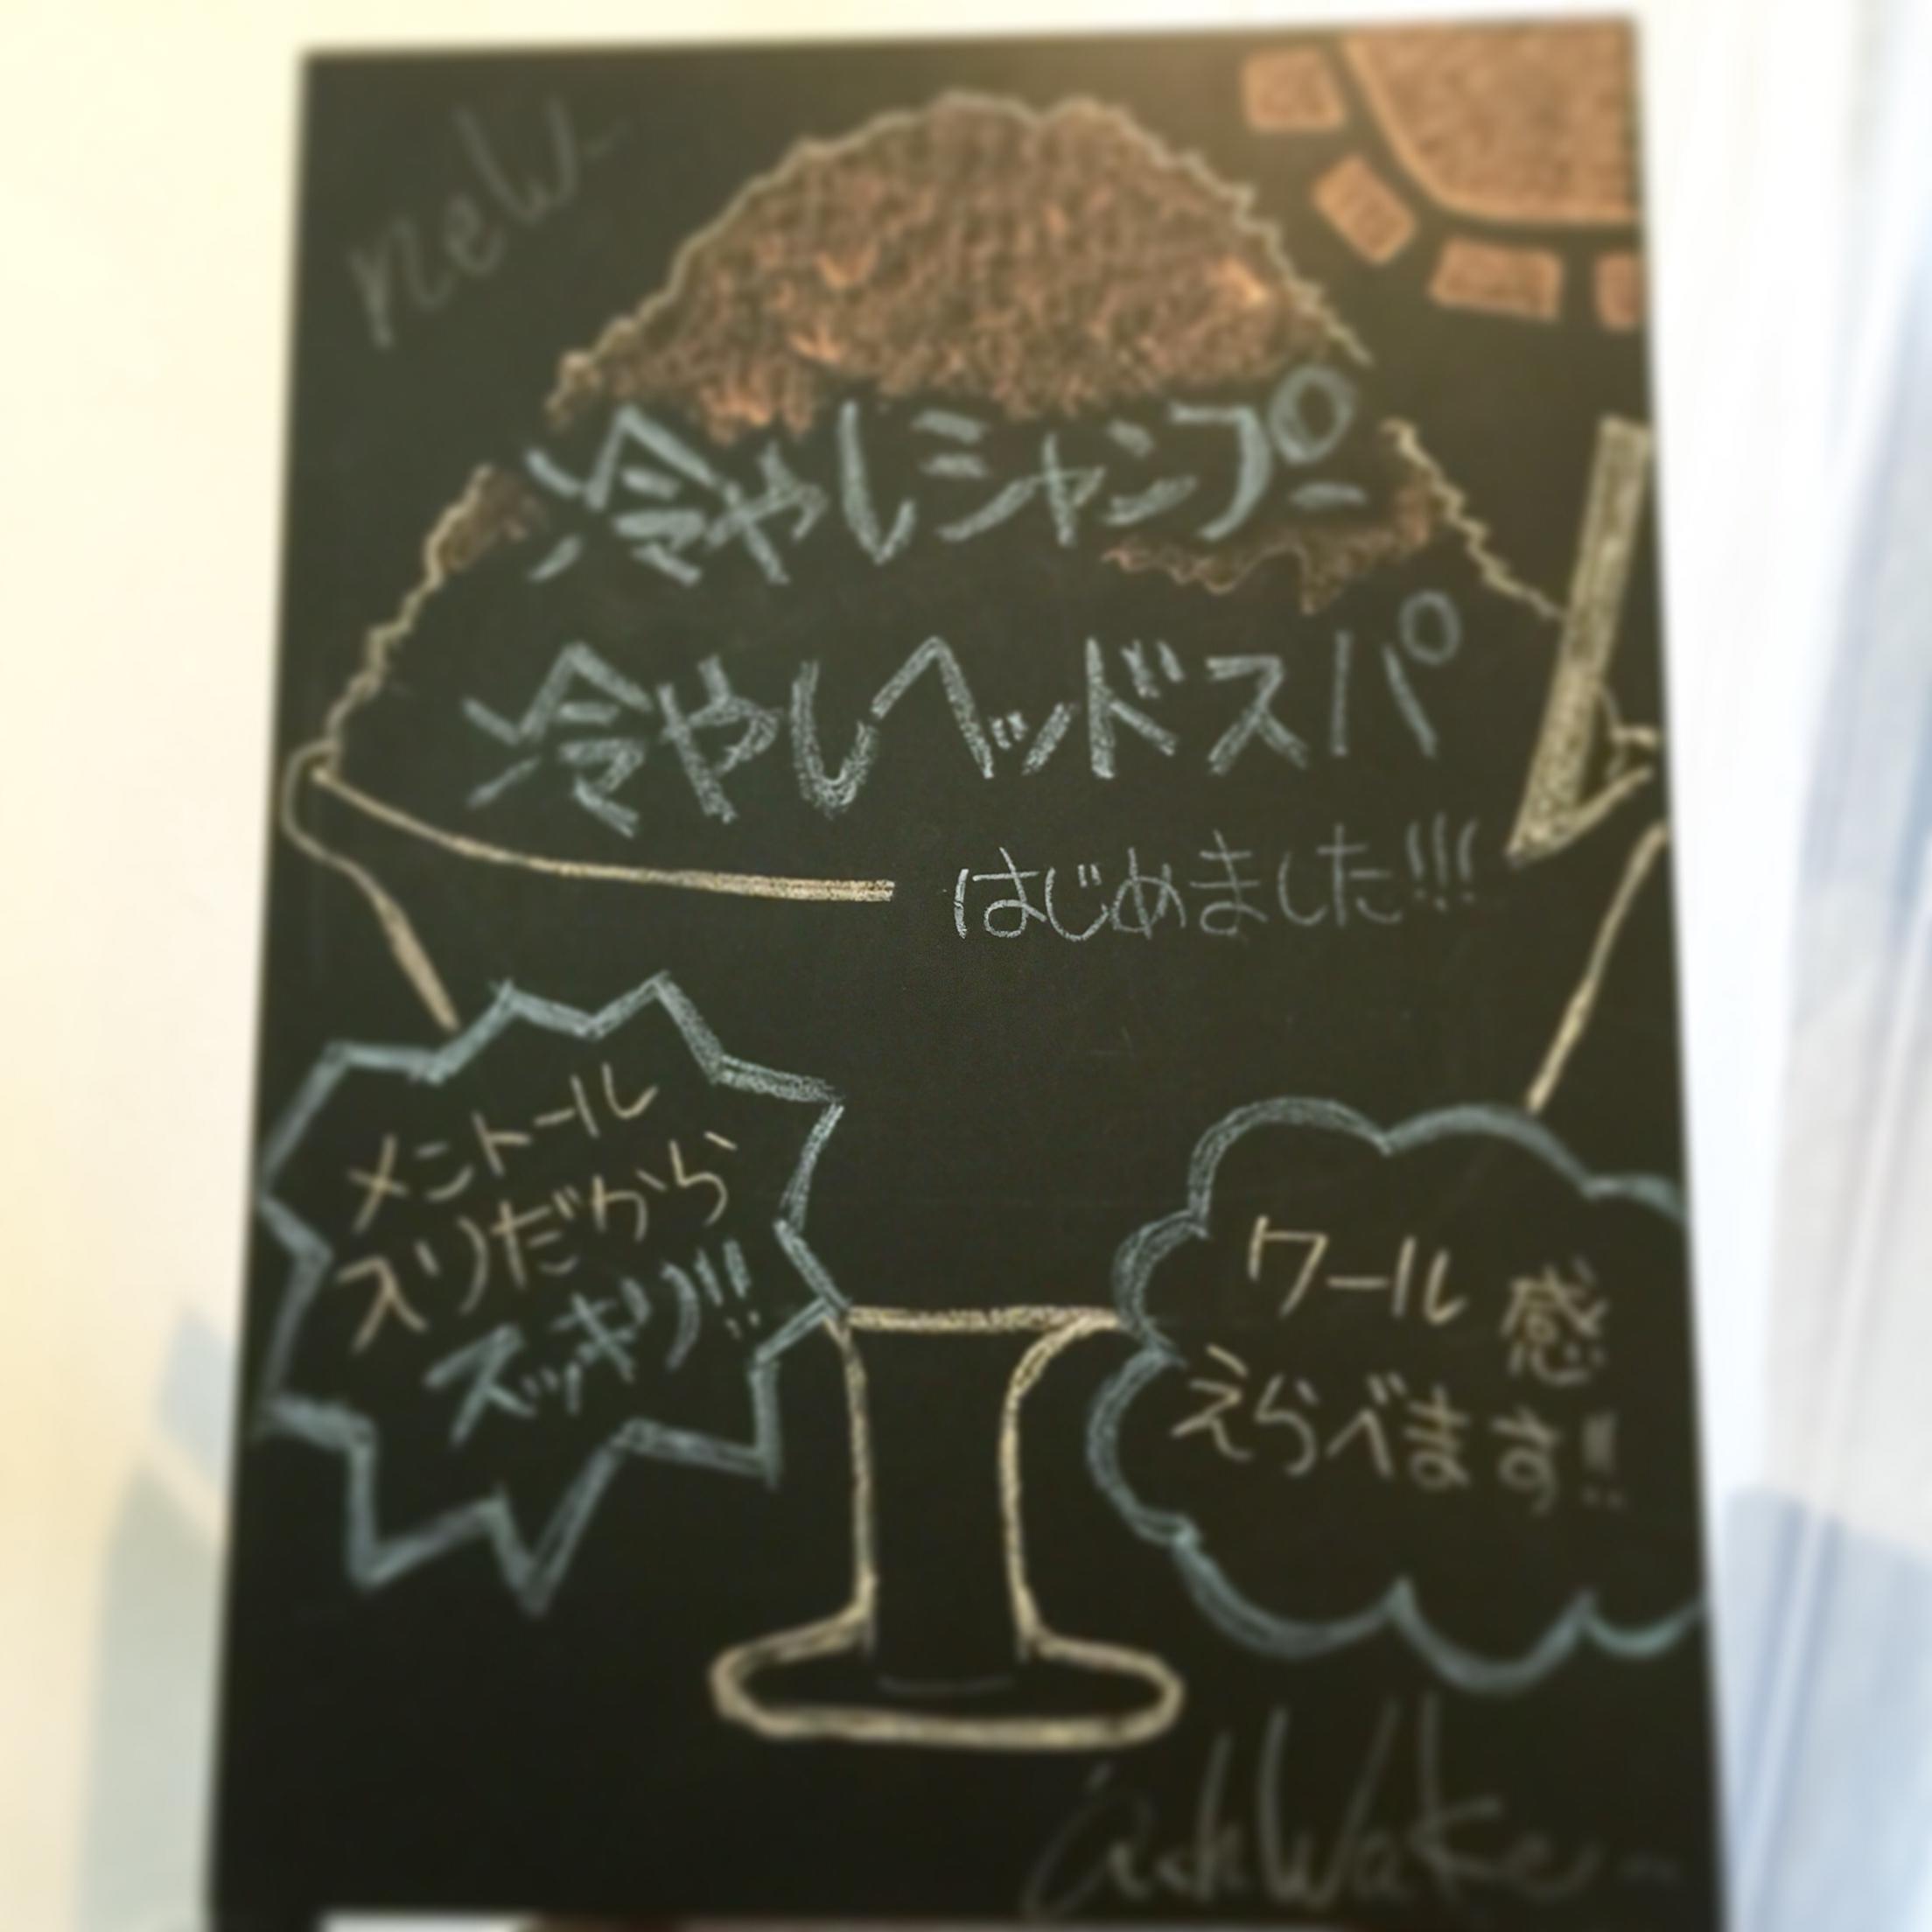 new
冷やしシャンプー
冷やしヘッドスパ
はじめました!!!
メントール
入りだから
スッキリ!!
クール感
えらべます!!